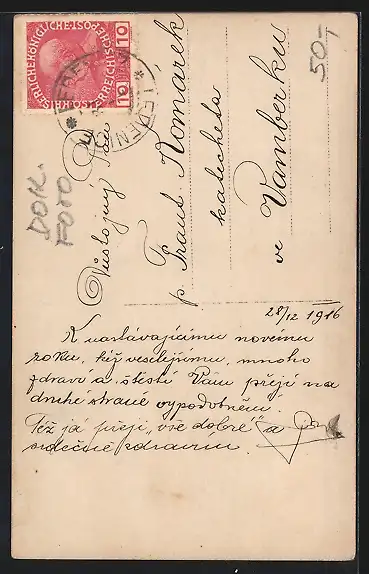 10 10
KAISERLICHE KÖNIGLICHE ÖSTERREICHISCHE POST
LEDEN
50,-
DOK.
FOTO
Důstojný Pan
P. Frant. Komárek
katecheta
ve Vamberku
28/12 1916
K nastávajícímu novému
roku, kéž veselejšímu, mnoho
zdraví a štěstí Vám přejí na
druhé straně vypodobnění.
Též já přeji „vše dobré“ a
srdečně zdravím.